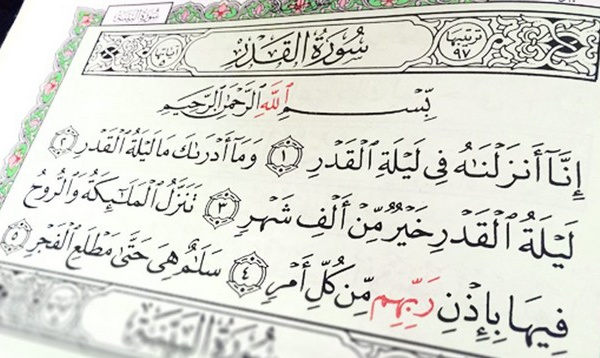 سُورَةُ البَيِّنَةِ
ترتيبها ٩٧ سُورَةُ القَدْرِ آياتها ٥
بِسْمِ ٱللَّهِ ٱلرَّحْمَٰنِ ٱلرَّحِيمِ
إِنَّآ أَنزَلْنَٰهُ فِى لَيْلَةِ ٱلْقَدْرِ ١ وَمَآ أَدْرَىٰكَ مَا لَيْلَةُ ٱلْقَدْرِ ٢
لَيْلَةُ ٱلْقَدْرِ خَيْرٌ مِّنْ أَلْفِ شَهْرٍ ٣ تَنَزَّلُ ٱلْمَلَٰٓئِكَةُ وَٱلرُّوحُ
فِيهَا بِإِذْنِ رَبِّهِم مِّن كُلِّ أَمْرٍ ٤ سَلَٰمٌ هِىَ حَتَّىٰ مَطْلَعِ ٱلْفَجْرِ ٥
سُورَةُ البَيِّنَةِ